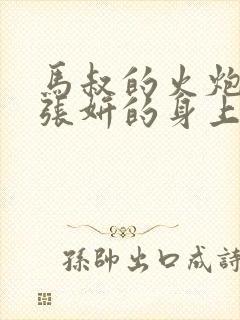 馬叔的火炮
張妍的身上
孫帥出口成詩